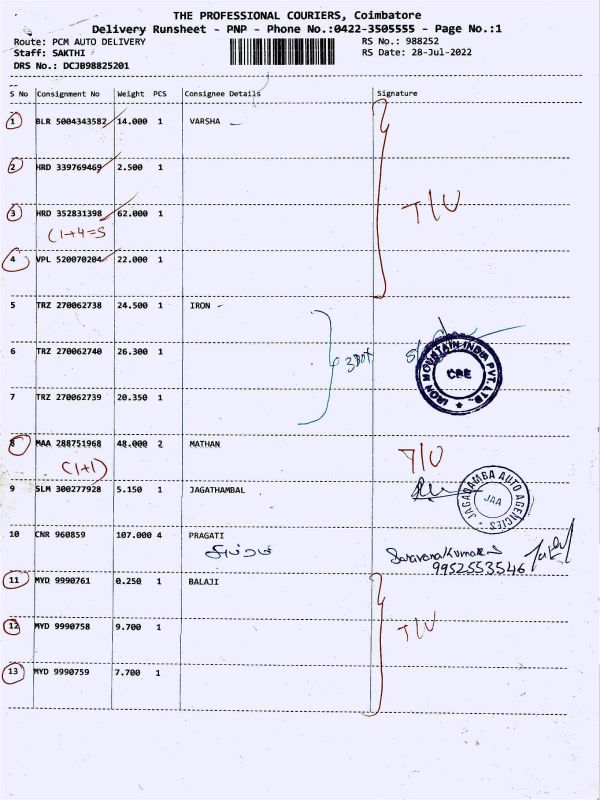 THE PROFESSIONAL COURIERS, Coimbatore
Delivery Runsheet - PNP - Phone No.:0422-3505555 - Page No.:1
Route: PCM AUTO DELIVERY
Staff: SAKTHI
DRS No.: DCJB98825201
RS No.: 988252
RS Date: 28-Jul-2022
S No Consignment No Weight PCS Consignee Details Signature
1 BLR 5004343582 14.000 1 VARSHA
2 HRD 339769469 2.500 1
T/U
3 HRD 352831398 62.000 1
(1+4=5
4 VPL 520070204 22.000 1
5 TRZ 270062738 24.500 1 IRON
6 TRZ 270062740 26.300 1
IRON MOUNTAIN INDIA PVT. LTD.
CBE
7 TRZ 270062739 20.350 1
8 MAA 288751968 48.000 2 MATHAN T/U
(1+1)
9 SLM 300277928 5.150 1 JAGATHAMBAL
JAGADAMBA AUTO AGENCIES
JAA
10 CNR 960859 107.000 4 PRAGATI
Saravanakumar
9952553546
11 MYD 9990761 0.250 1 BALAJI
12 MYD 9990758 9.700 1 T/U
13 MYD 9990759 7.700 1